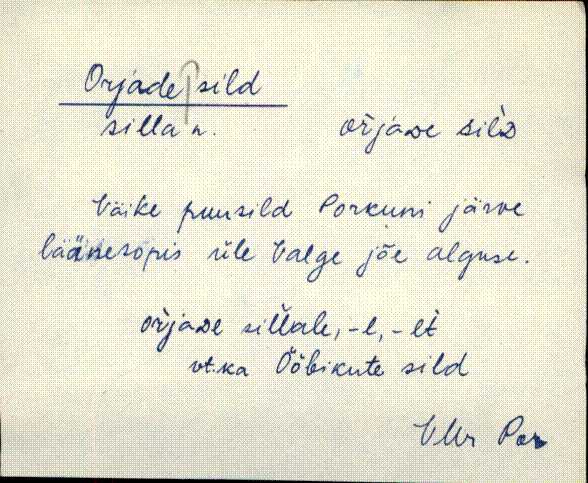 Orjade sild
silla n. or̆jaᴅe silᴅ
Väike puusild Porkuni järve
läänesopis üle Valge jõe alguse.
or̆jaᴅe sil̆lale, -l, -lt
vt. ka Ööbikute sild
VMr Por